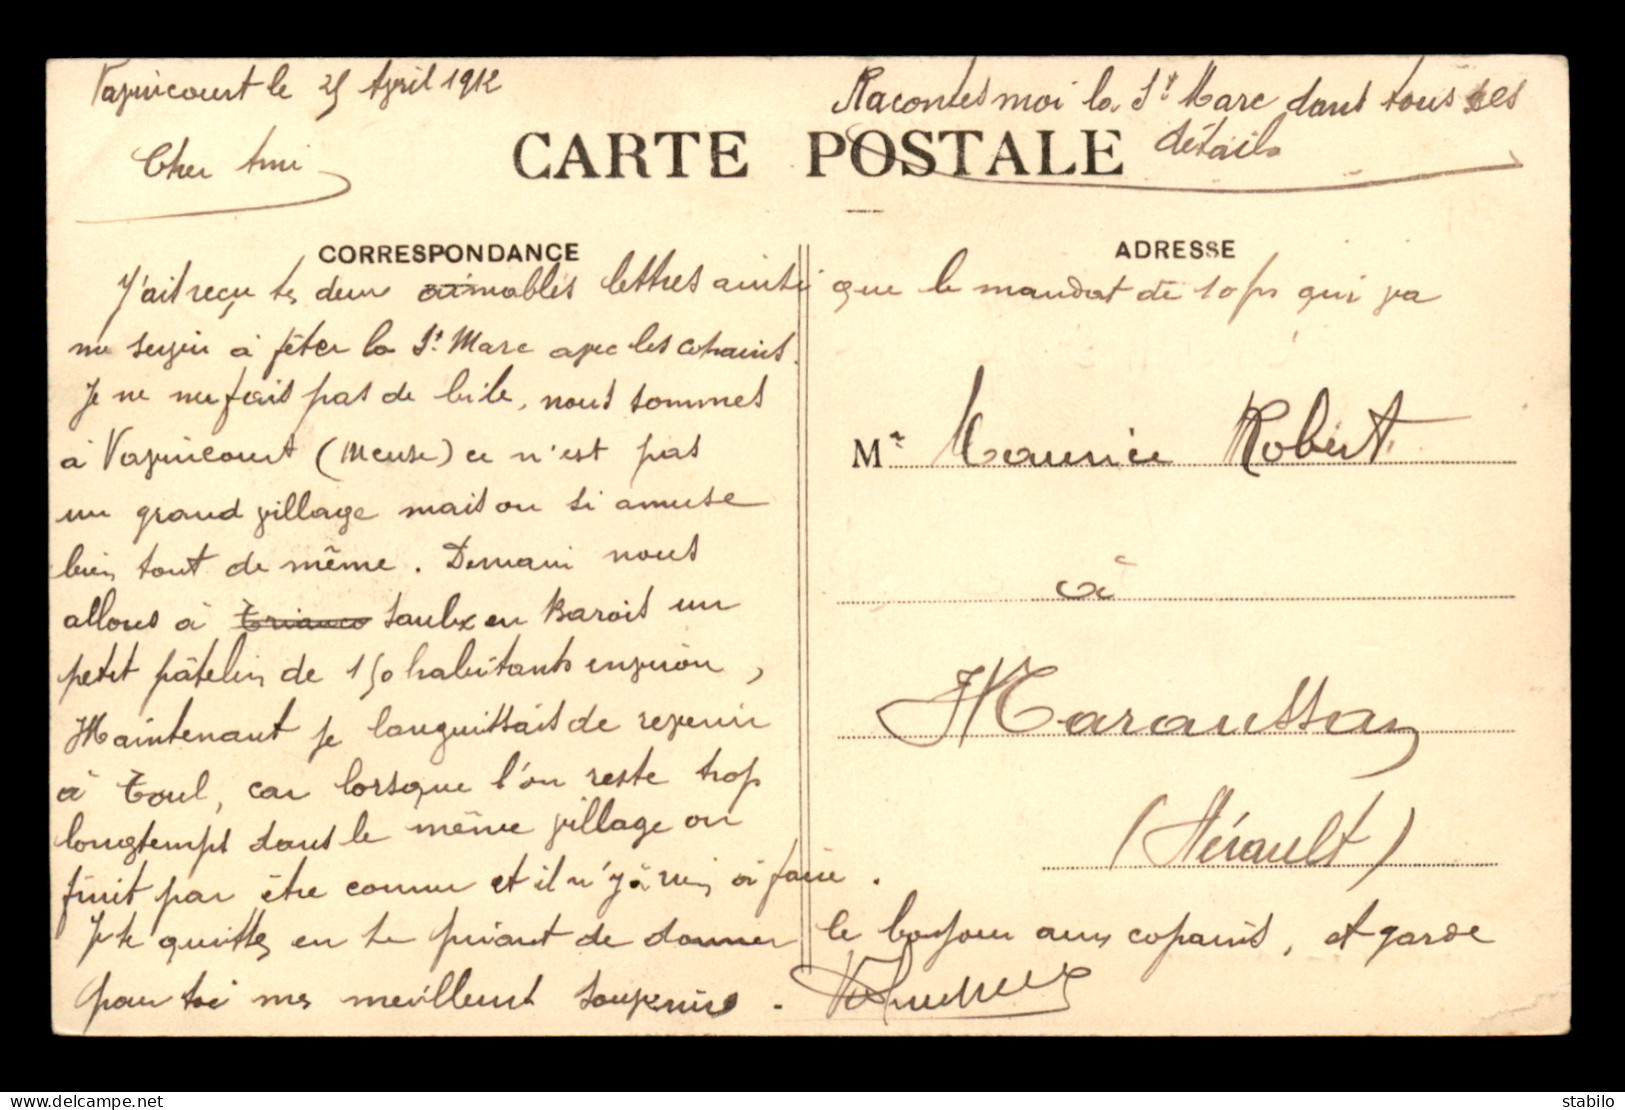 Vavincourt le 25 Avril 1912
Racontes moi la St Marc dans tous ses
détails
Cher Ami
CARTE POSTALE
CORRESPONDANCE
ADRESSE
J'ait reçu tes deux aimables lettres ainsi que le mandat de 10 frs qui va
me servir à fêter la St Marc avec les copains.
Je ne me fais pas de bile, nous sommes
à Vavincourt (Meuse) ce n'est pas
un grand village mais on si amuse
bien tout de même. Demain nous
allons à Saulx en Barois un
petit pâtelin de 150 habitants environ,
Maintenant je languissais de revenir
à Toul, car lorsque l'on reste trop
longtemps dans le même village on
finit par être connu et il n'y à rien à faire.
Je te quittes en te priant de donner le bonjour aux copains, et garde
pour toi mes meilleurs souvenirs.
Mr Maurice Robert
à
Maraussan
(Hérault)
delcampe.net
stabilo